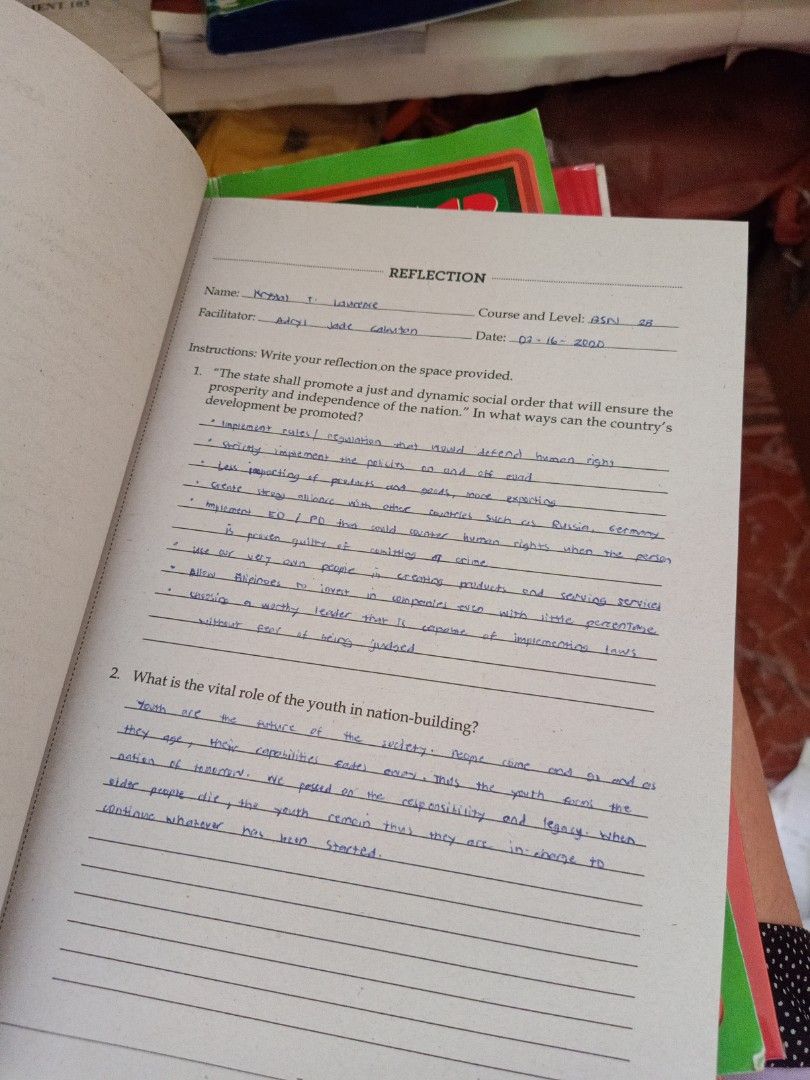 IENT 103
REFLECTION
Name: Krystal T. Lawrence
Course and Level: BSN 2B
Facilitator: Jade
Date: 02-16-2020
Instructions: Write your reflection on the space provided.
1. "The state shall promote a just and dynamic social order that will ensure the
prosperity and independence of the nation." In what ways can the country's
development be promoted?
• Implement rules / regulation that would defend human right
• Strictly implement the policies on and off
• Less importing of products and goods, more exporting
• Create strong alliance with other countries such as Russia, Germany
• Implement EO / PD that could counter human rights when the person
is proven guilty of comitting a crime
• use our very own people in creating products and serving services
• Allow filipinoes to invest in companies even with little percentage
• choosing a worthy leader that is capable of implementing laws
without fear of being judged
2. What is the vital role of the youth in nation-building?
Youth are the future of the society. People come and go and as
they age, their capabilities fades away. Thus the youth forms the
nation of tomorrow. We passed on the responsibility and legacy. When
older people die, the youth remain thus they are in-charge to
continue whatever has been started.